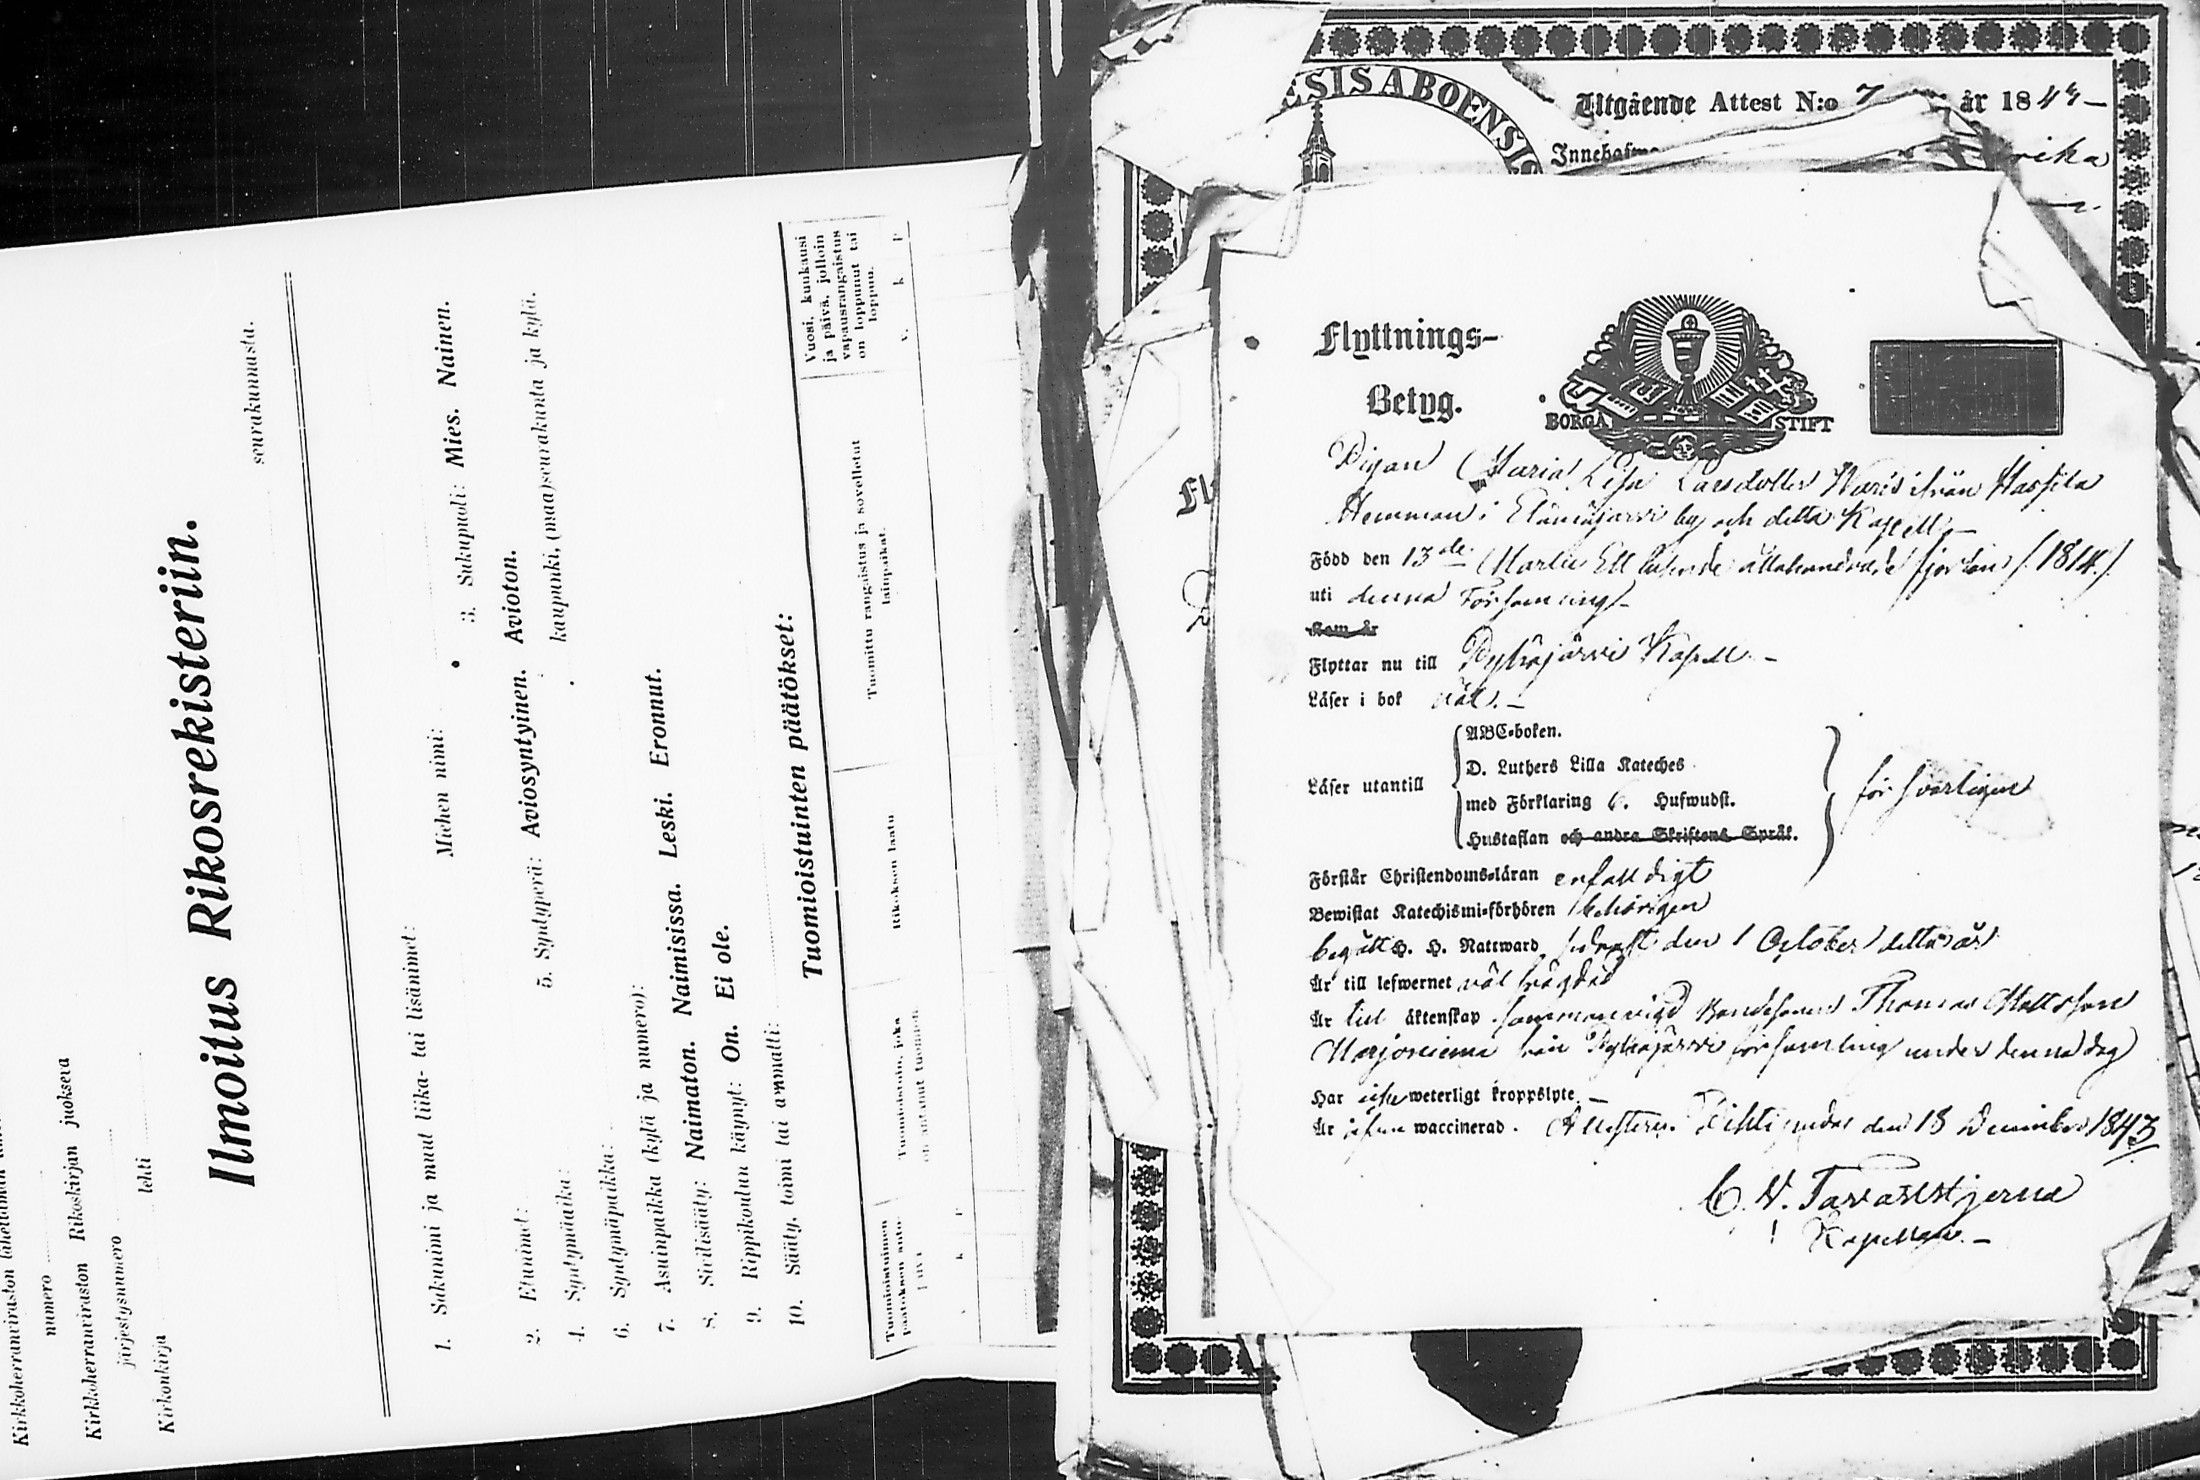 Kirkkoherranviraston
numero
Kirkkoherranviraston Rikoskirjan juokseva
järjestysnumero
Kirkonkirja lehti
Ilmoitus Rikosrekisteriin.
seurakunnasta.
1. Sukunimi ja muut liika- tai lisänimet:
Miehen nimi:
2. Etunimet: 3. Sukupuoli: Mies. Nainen.
4. Syntymäaika: 5. Syntyperä: Aviosyntyinen. Avioton.
6. Syntymäpaikka: kaupunki, (maa)seurakunta ja kylä.
7. Asuinpaikka (kylä ja numero):
8. Siviilisääty: Naimaton. Naimisissa. Leski. Eronnut.
9. Rippikoulun käynyt: On. Ei ole.
10. Sääty, toimi tai ammatti:
Tuomioistuinten päätökset:
Tuomioistuimen
päätöksen anto-
päivä
v. k. p.
Tuomioistuin, joka
on antanut tuomion
Rikoksen laatu
Tuomittu rangaistus ja sovelletut
lainpaikat.
Vuosi, kuukausi
ja päivä, jolloin
vapausrangaistus
on loppunut tai
loppuu.
v. k p
ESIS ABOENSIS
Utgående Attest N:o 7 år 18
rika
Fl
Flyttnings-
Betyg.
BORGÅ STIFT
Pigan Maria Lisa Larsdotter Waris ifrån
Hemman i Elämäjärvi by och detta Kapell
Född den 13de Martii Ett tusende åttahundrade fjorton /:1814:/
uti denna Församling
Kom år
Flyttar nu till Pyhäjärvi Kapell. –
Läser i bok väl. –
Läser utantill
ABC-boken.
D. Luthers Lilla Kateches
med Förklaring 6. Hufwudst.
Hustaflan och andra Skriftens Språk.
försvarligen
Förstår Christendoms-läran enfalldigt
Bewistat Katechismi-förhören behörigen
begått H. H. Nattward sednast den 1 October detta år
Är till lefwernet väl frägdad
Är till äktenskap sammanvigd Bondesonen Thomas Mattsson
Marjoniemi från Pyhäjärvi församling under denna dag
Har icke weterligt kroppslyte. –
Är waccinerad. Attesterar Pihtipudas den 18 December 1843
C. W. Tavaststjerna
Kapellan. –